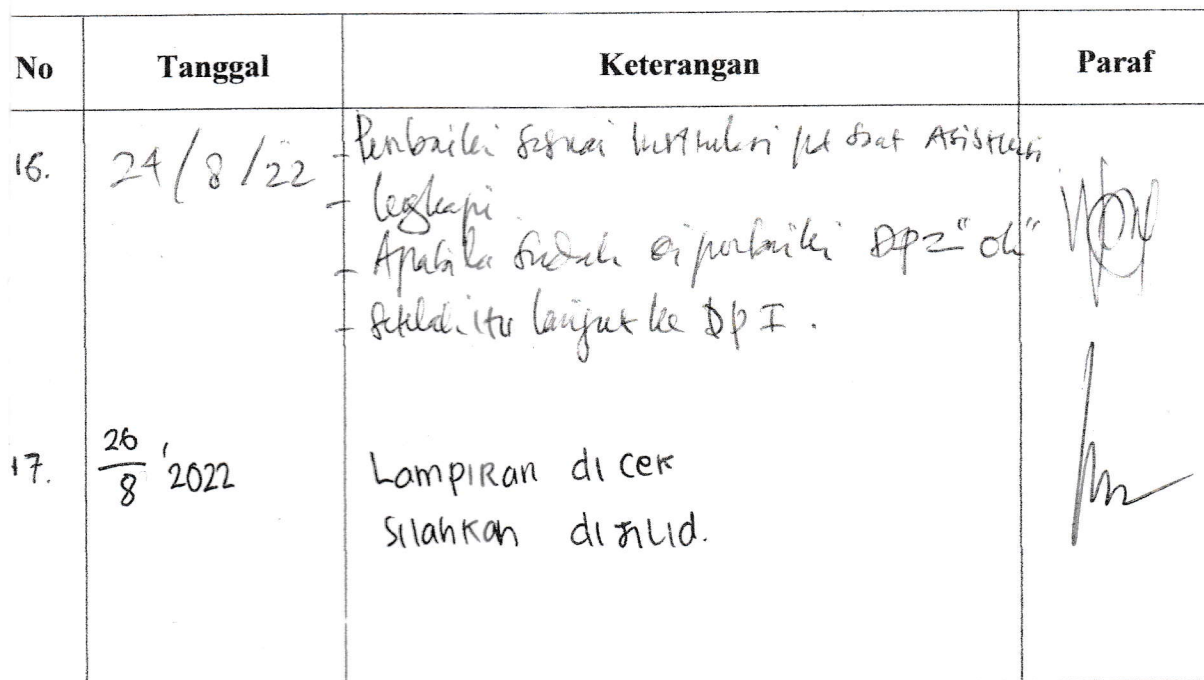 No Tanggal Keterangan Paraf
16. 24/8/22 - Perbaiki sesuai instruksi pd saat Asistensi
- lengkapi
- Apabila sudah diperbaiki DP2 "ok"
- Setelah itu lanjut ke DP I.
17. 26/8 '2022 Lampiran di cek
Silahkan di jilid.